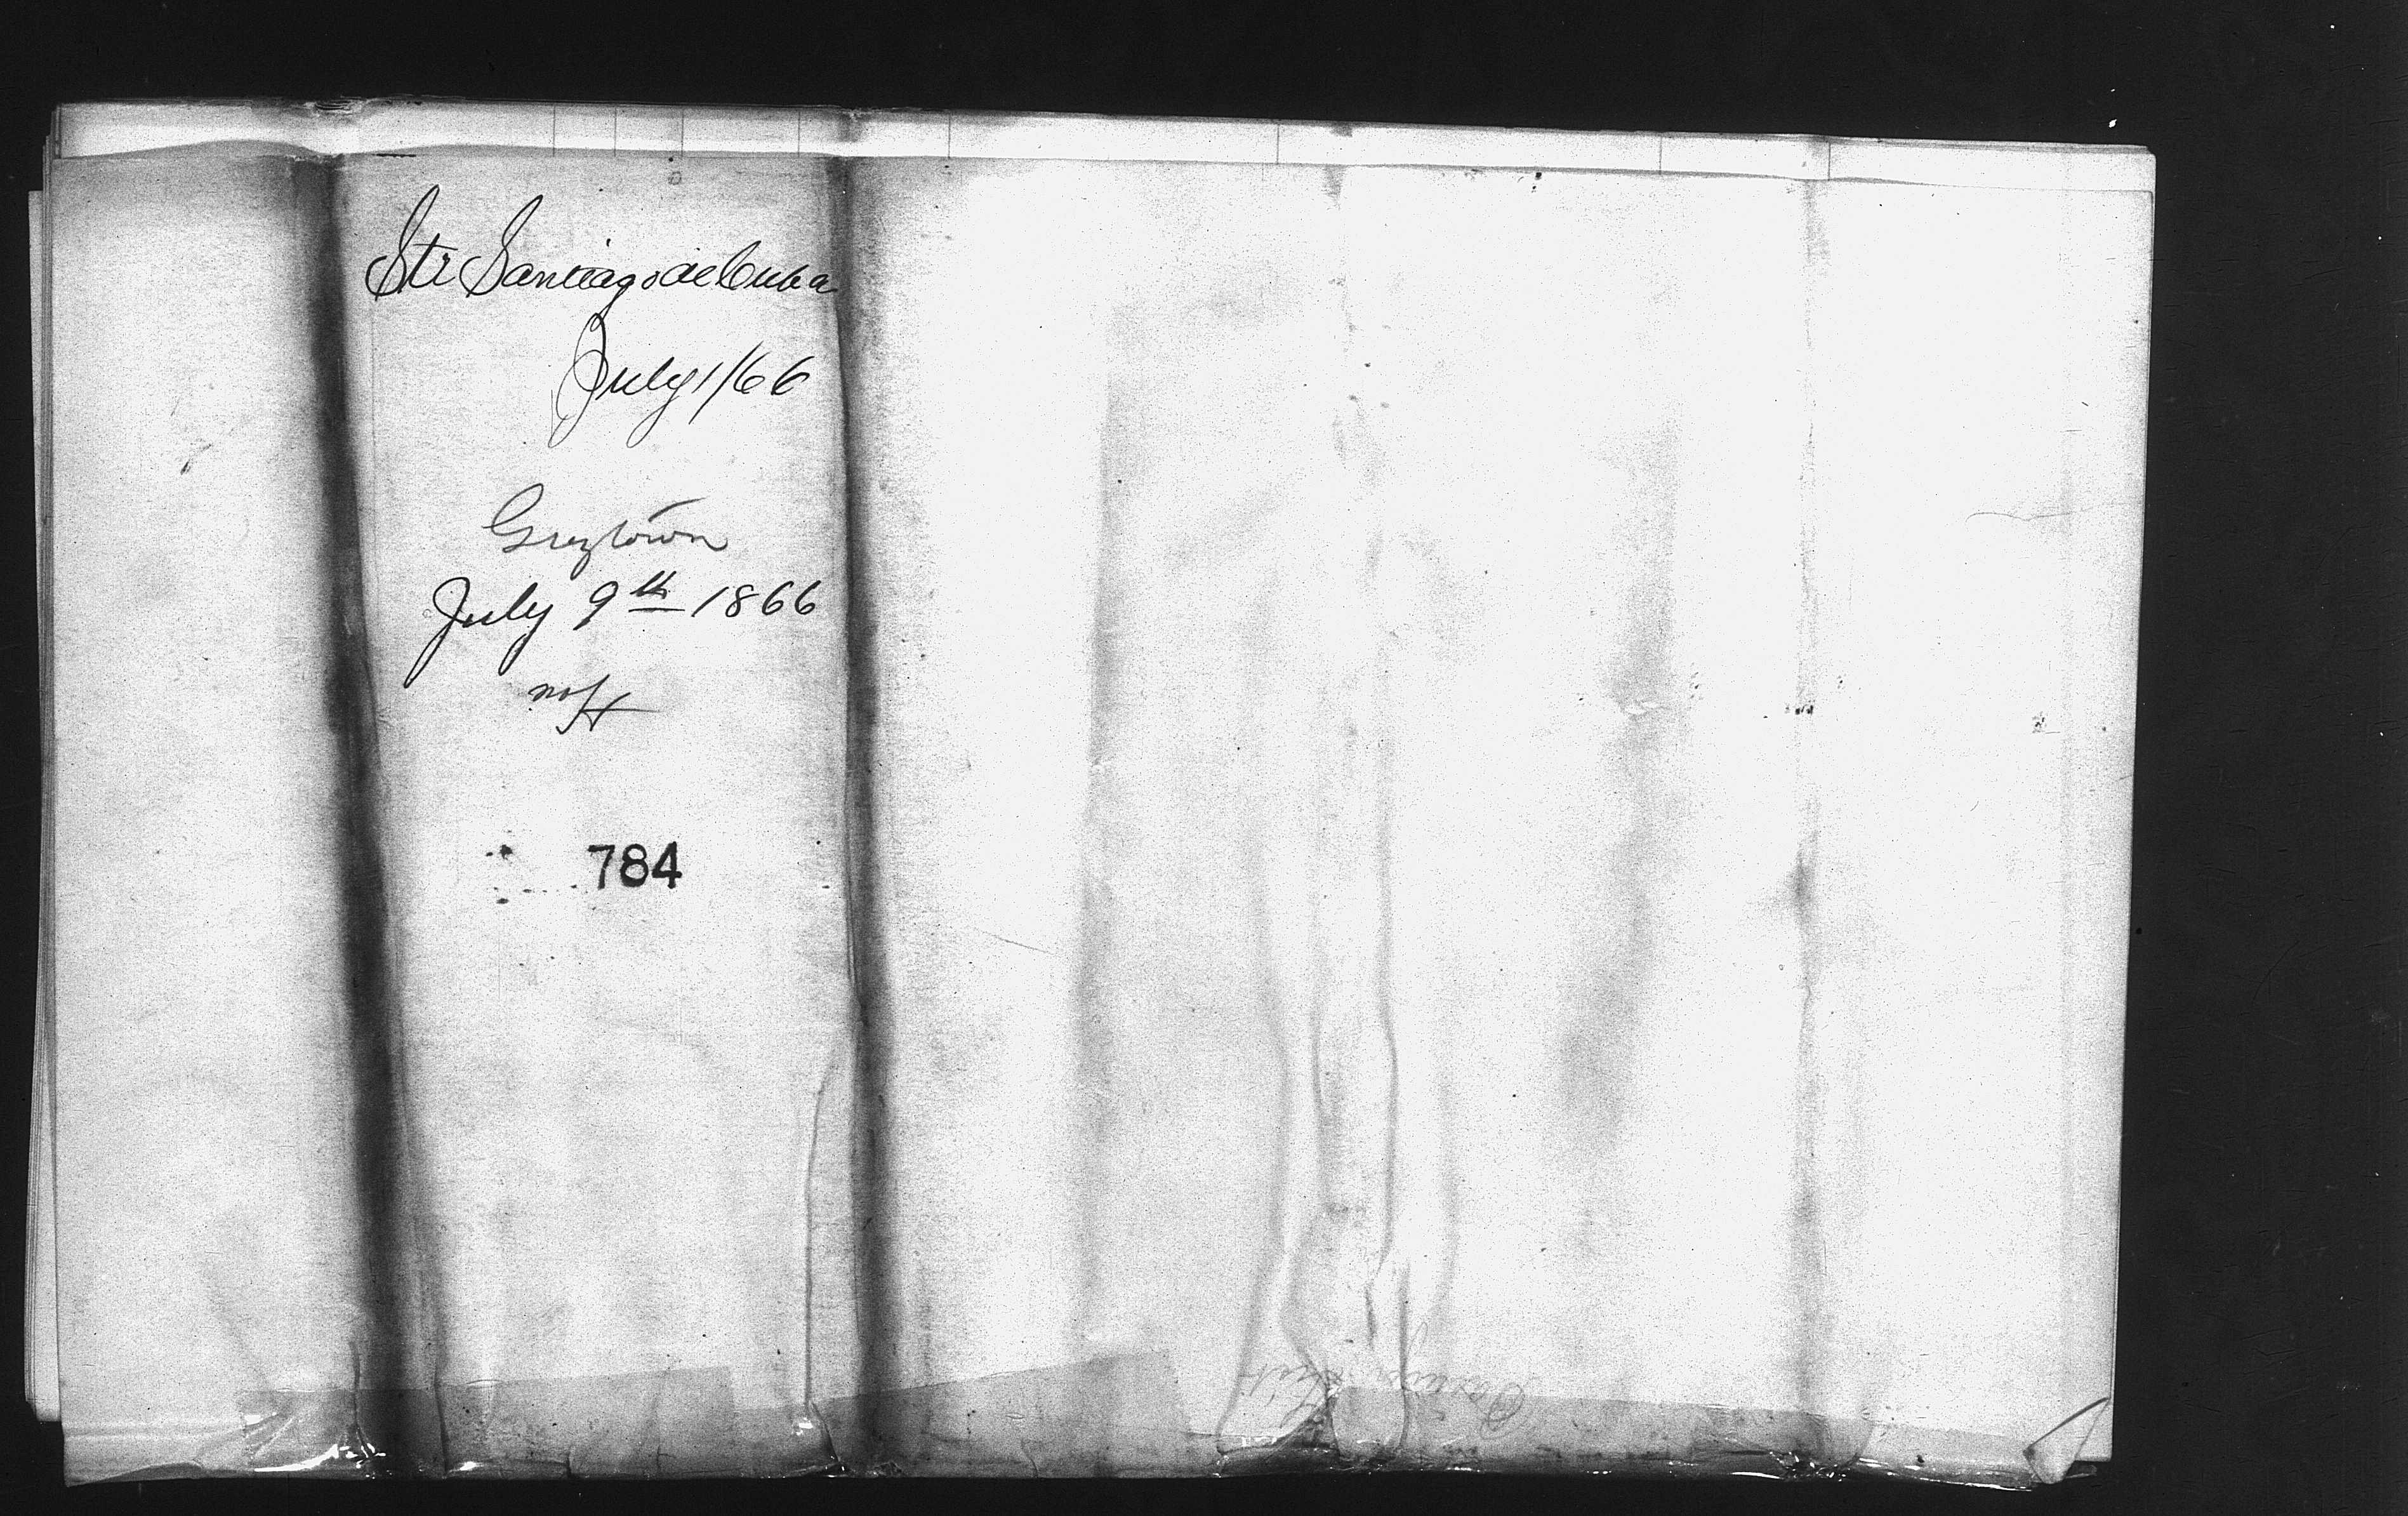 Str Santiago de Cuba
July 1/66
Greytown
July 9th 1866
784